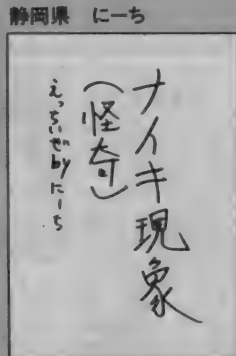 静岡県 にーち
ナイキ現象
(怪奇)
えっちいぜbyにーち